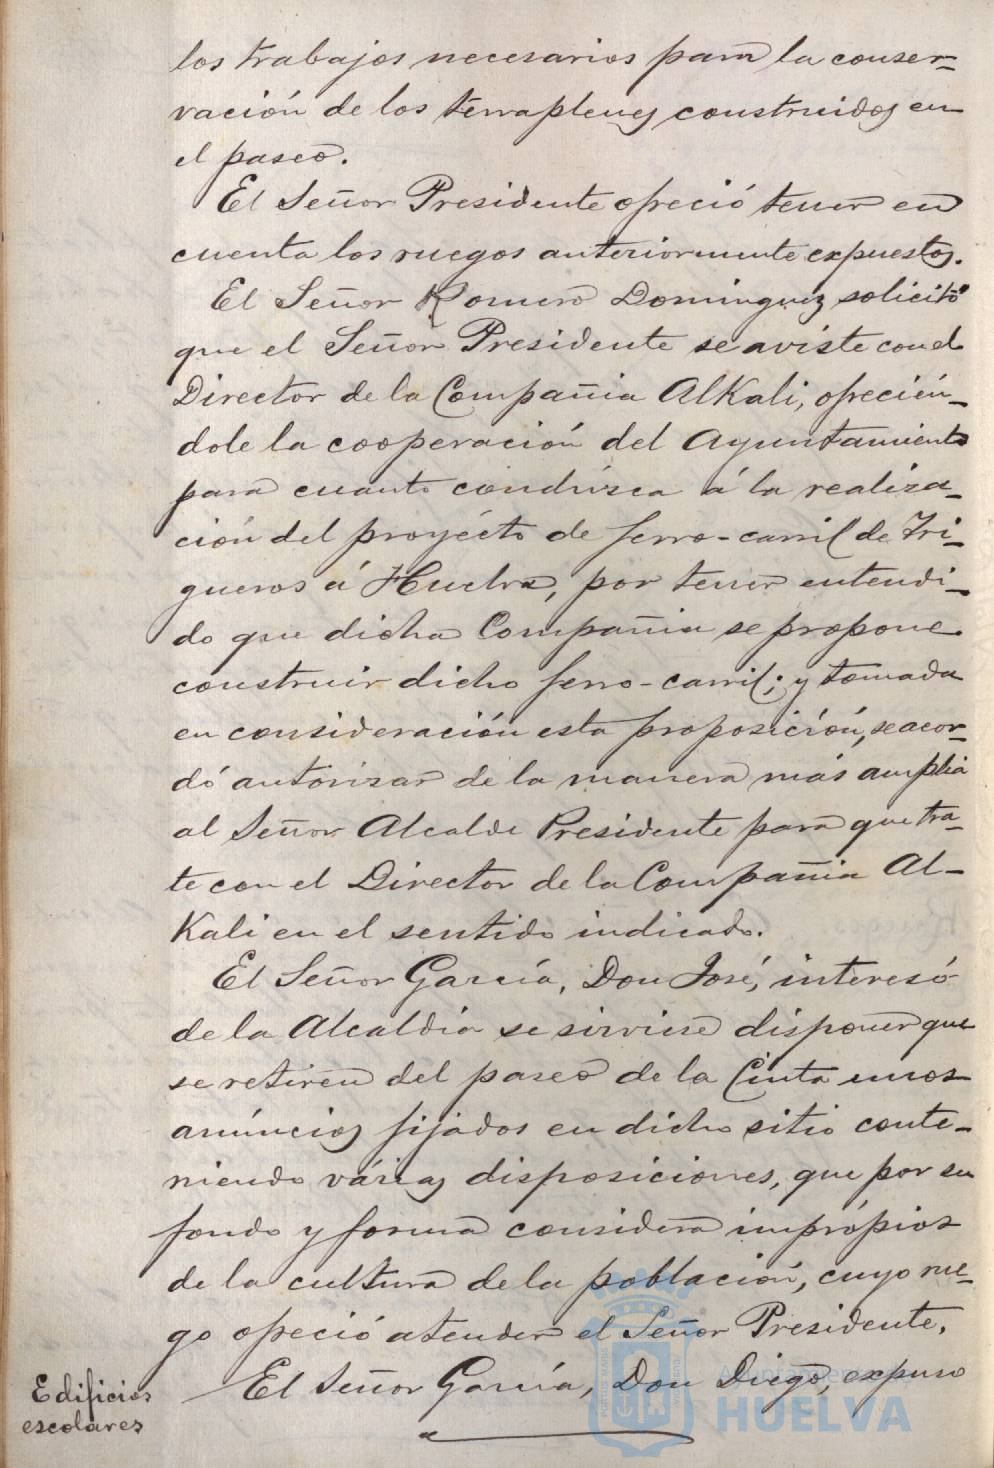 los trabajos necesarios para la conser-
vación de los terraplenes construidos en
el paseo.
El Señor Presidente ofreció tener en
cuenta los ruegos anteriormente expuestos.
El Señor Romero Dominguez solicitó
que el Señor Presidente se aviste con el
Director de la Compañia Alkali, ofrecién-
dole la cooperación del Ayuntamiento
para cuanto condúzca á la realiza-
ción del proyécto de ferro-carril de Tri-
gueros á Huelva, por tener entendi-
do que dicha Compañia se propone
construir dicho ferro-carril; y tomada
en consideración esta proposición, se acor-
dó autorizar de la manera más amplia
al Señor Alcalde Presidente para que tra-
te con el Director de la Compañia Al-
Kali en el sentido indicado.
El Señor García, Don José, interesó
de la Alcaldía se sirviese disponer que
se retiren del paseo de la Cinta unos
anúncios fijados en dicho sitio conte-
niendo várias disposiciones, que por su
fondo y forma considera imprópios
de la cultura de la población, cuyo rue-
go ofreció atender el Señor Presidente.
Edificios
escolares
El Señor García, Don Diego, expuso
Ayuntamiento de
HUELVA